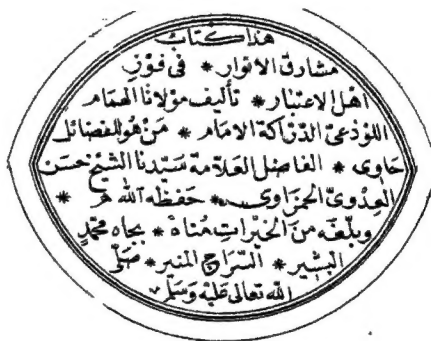 هذا كتاب
مشارق الانوار * فى فوز
اهل الاعتبار * تأليف مولانا الهمام
اللوذعىّ الدّرّاكة الامام * مَنْ هُوَ للفضائل
حَاوى * الفاضل العلّامة سَيّدنا الشيخ حسَن
العِدْوىّ الحَمْزاوى * حَفظَه آلله *
وبلّغه منَ الخَيْراتِ مُناهْ * بجاه محمّدٍ
البشير * السّرَاجِ المنير * صَلّى
الله تعالى عَلَيْه وَسَلم